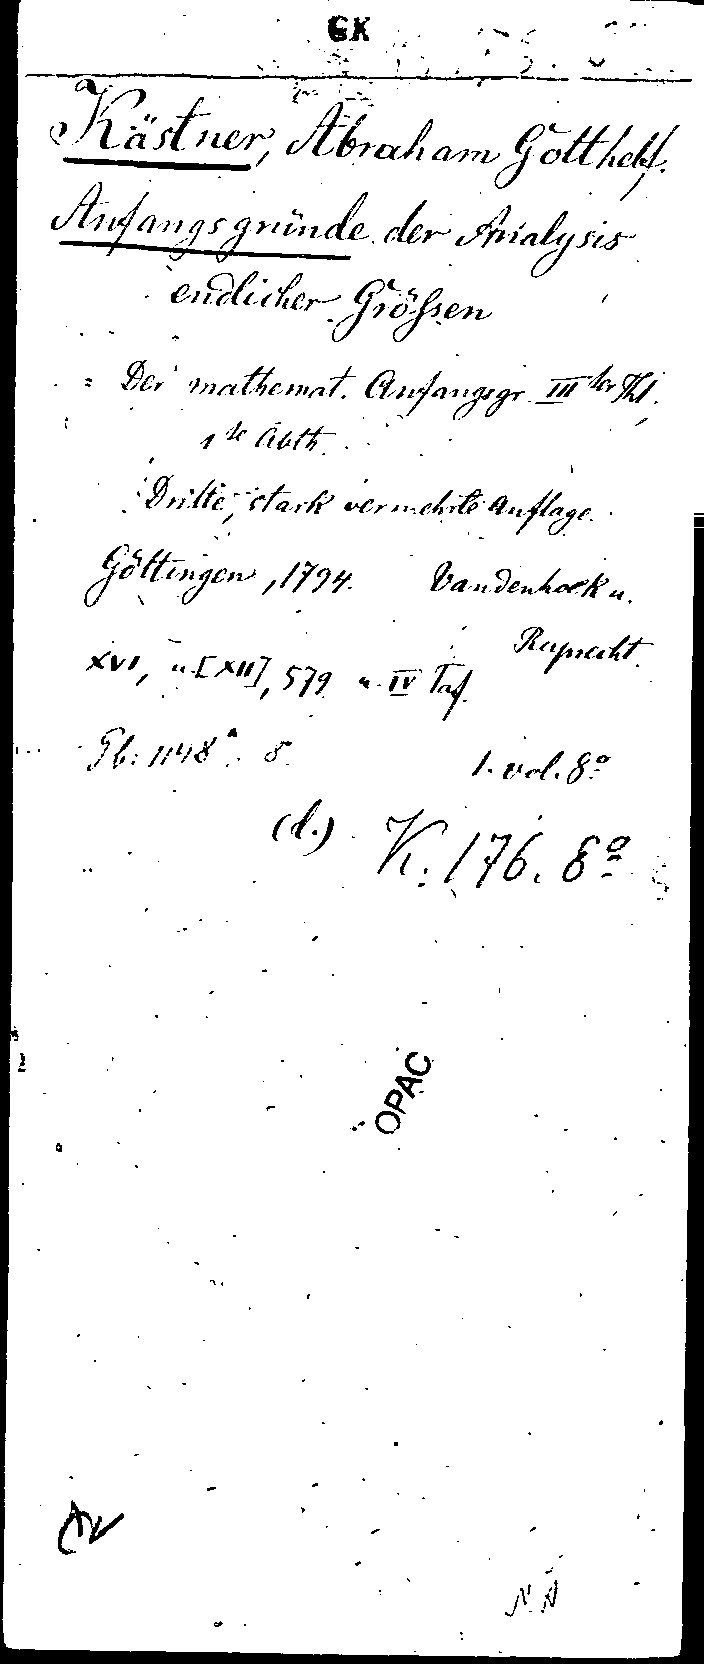 GK
Kästner, Abraham Gotthelf.
Anfangsgründe der Analysis
endlicher Grössen
= Der mathemat. Anfangsgr. III ter Thl.
1 te Abth.
Dritte, stark vermehrte Auflage.
Göttingen, 1794. Vandenhoek u.
Ruprecht.
XVI, u [XII], 579 u. IV Taf.
1148 8. 1. vol. 8º
(d.) K. 176. 8º
OPAC
NA